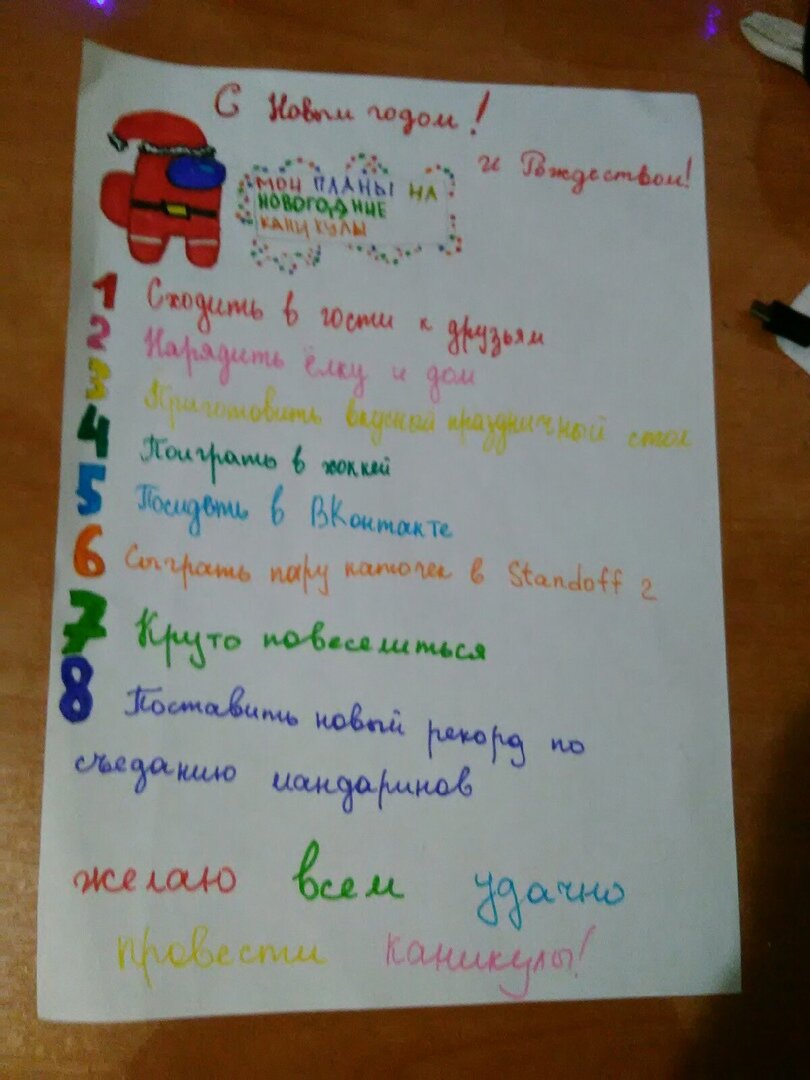 С Новым годом!
и Рождеством!
МОИ ПЛАНЫ НА
НОВОГОДНИЕ
КАНИКУЛЫ
1 Сходить в гости к друзьям
2 Нарядить ёлку и дом
3 Приготовить вкусный праздничный стол
4 Поиграть в хоккей
5 Посидеть в ВКонтакте
6 Сыграть пару каточек в Standoff 2
7 Круто повеселиться
8 Поставить новый рекорд по
съеданию мандаринов
желаю всем удачно
провести каникулы!